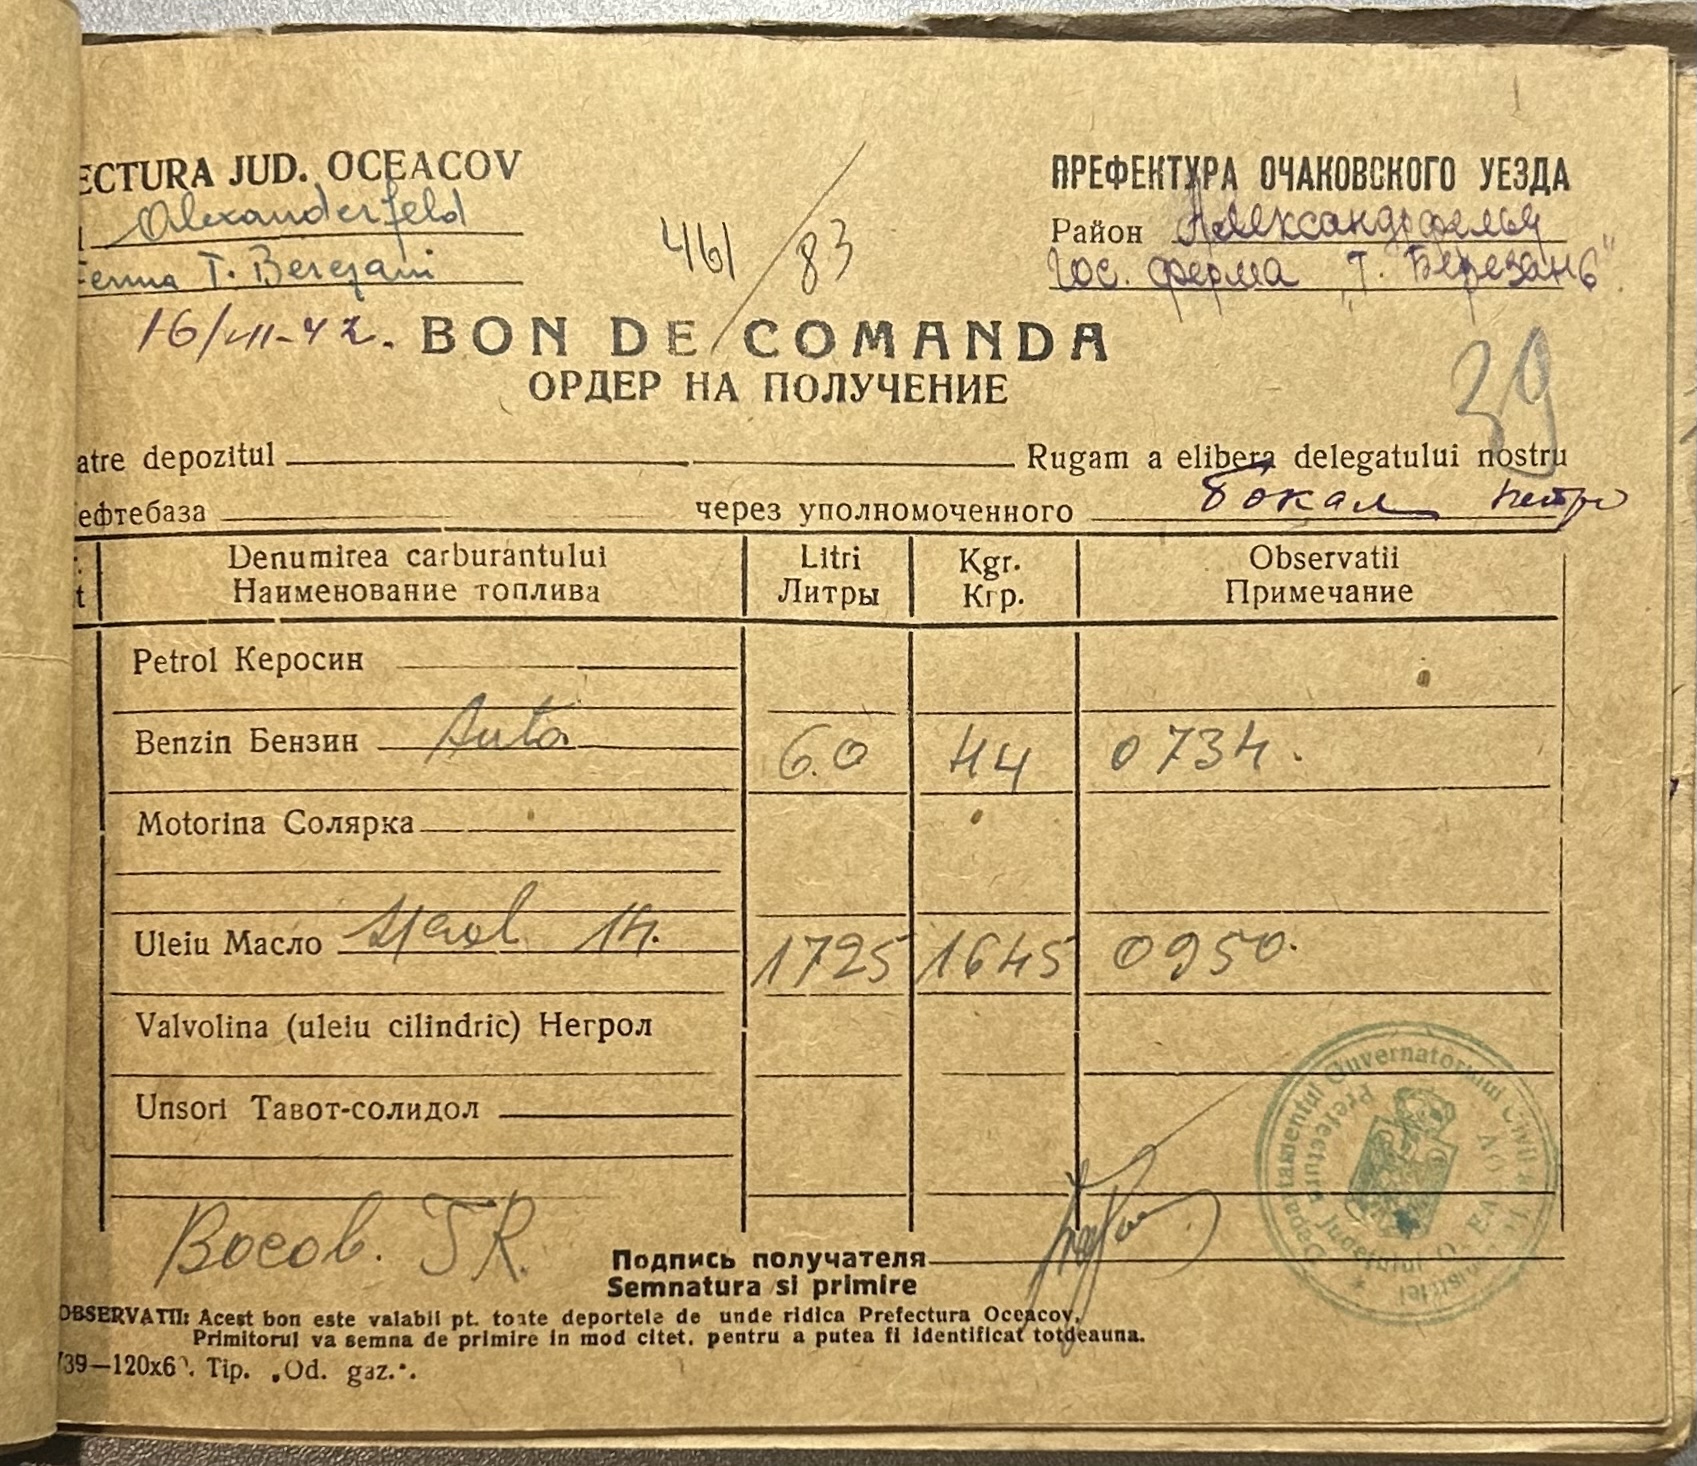 ECTURA JUD. OCEACOV
ПРЕФЕКТУРА ОЧАКОВСКОГО УЕЗДА
Alexanderfeld
461/83
Район Александрфельд
Ferma T. Berezani
Гос. ферма "Т. Березань"
16/VII-42.
BON DE COMANDA
ОРДЕР НА ПОЛУЧЕНИЕ
39
atre depozitul Rugam a elibera delegatului nostru
ефтебаза через уполномоченного Бокал Петро
Denumirea carburantului Litri Kgr. Observatii
Наименование топлива Литры Кгр. Примечание
Petrol Керосин
Benzin Бензин Auto 60 44 0734.
Motorina Солярка
Uleiu Масло 14. 1725 1645 0950.
Valvolina (uleiu cilindric) Негрол
Unsori Тавот-солидол
Подпись получателя
Semnatura si primire
OBSERVATII: Acest bon este valabil pt. toate deportele de unde ridica Prefectura Oceacov.
Primitorul va semna de primire in mod citet. pentru a putea fi identificat totdeauna.
39—120x6 . Tip. „Od. gaz.".
Departamentul Guvernatorului Civil al
Prefectura Judetului